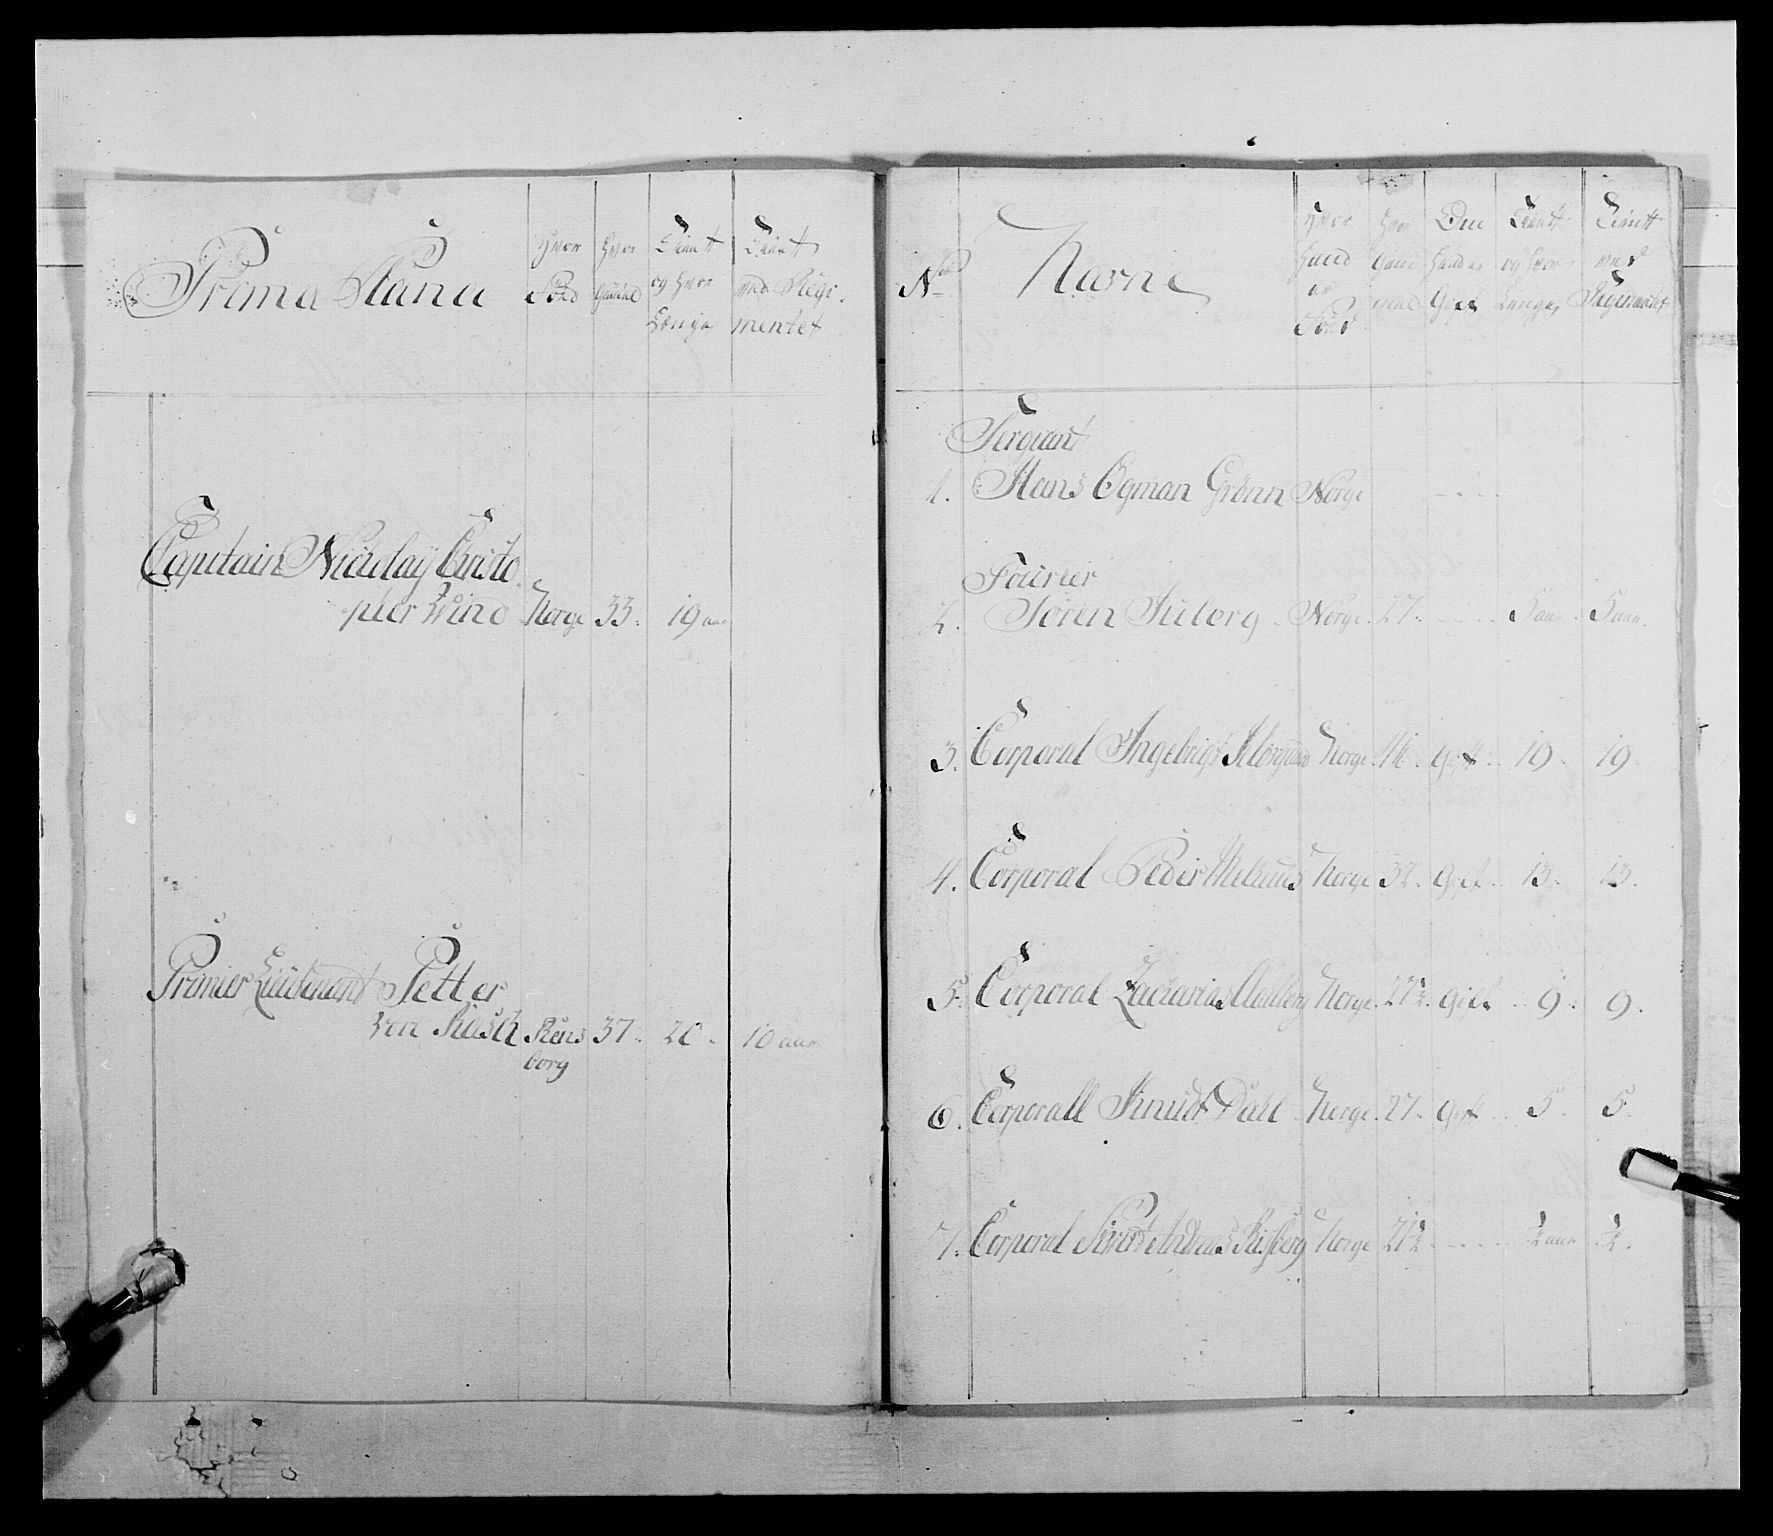 Prima Plana
Hvor
Föed
Hvor
Gammel
Tient
og Hvor
Længe
Tient
ved Regi-
mentet
Capitain Nicolay Christo-
pher Wind Norge 33. 19 aar
Premier Lieutenant Petter
von Rasch Rens 37. 20. 10 aar
borg
No
Navne
Hvor
hand
er
Föed
Hvor
Gam
mel
Om
hand er
Gift
Tient
og Hvor
Længe
Tient
ved
Regimentet
Sergeant
1. Hans Ogman Grönn Norge - - - -
Fourier
2. Sören Juberg Norge. 27. - - - - 5 aar. 5 aar.
3. Corporal Ingebrigt Norge. 46. Gift. 19. 19.
4. Corporal Peder Melhuus Norge 32. Gift. 13. 13.
5. Corporal Zacharias Norge. 27½. Gift. 9. 9.
6. Corporall Knudt Dahl Norge. 27. Gift. 5. 5.
7. Corporal Andreas Risberg Norge 21½. - - - - ½ aar. ½.